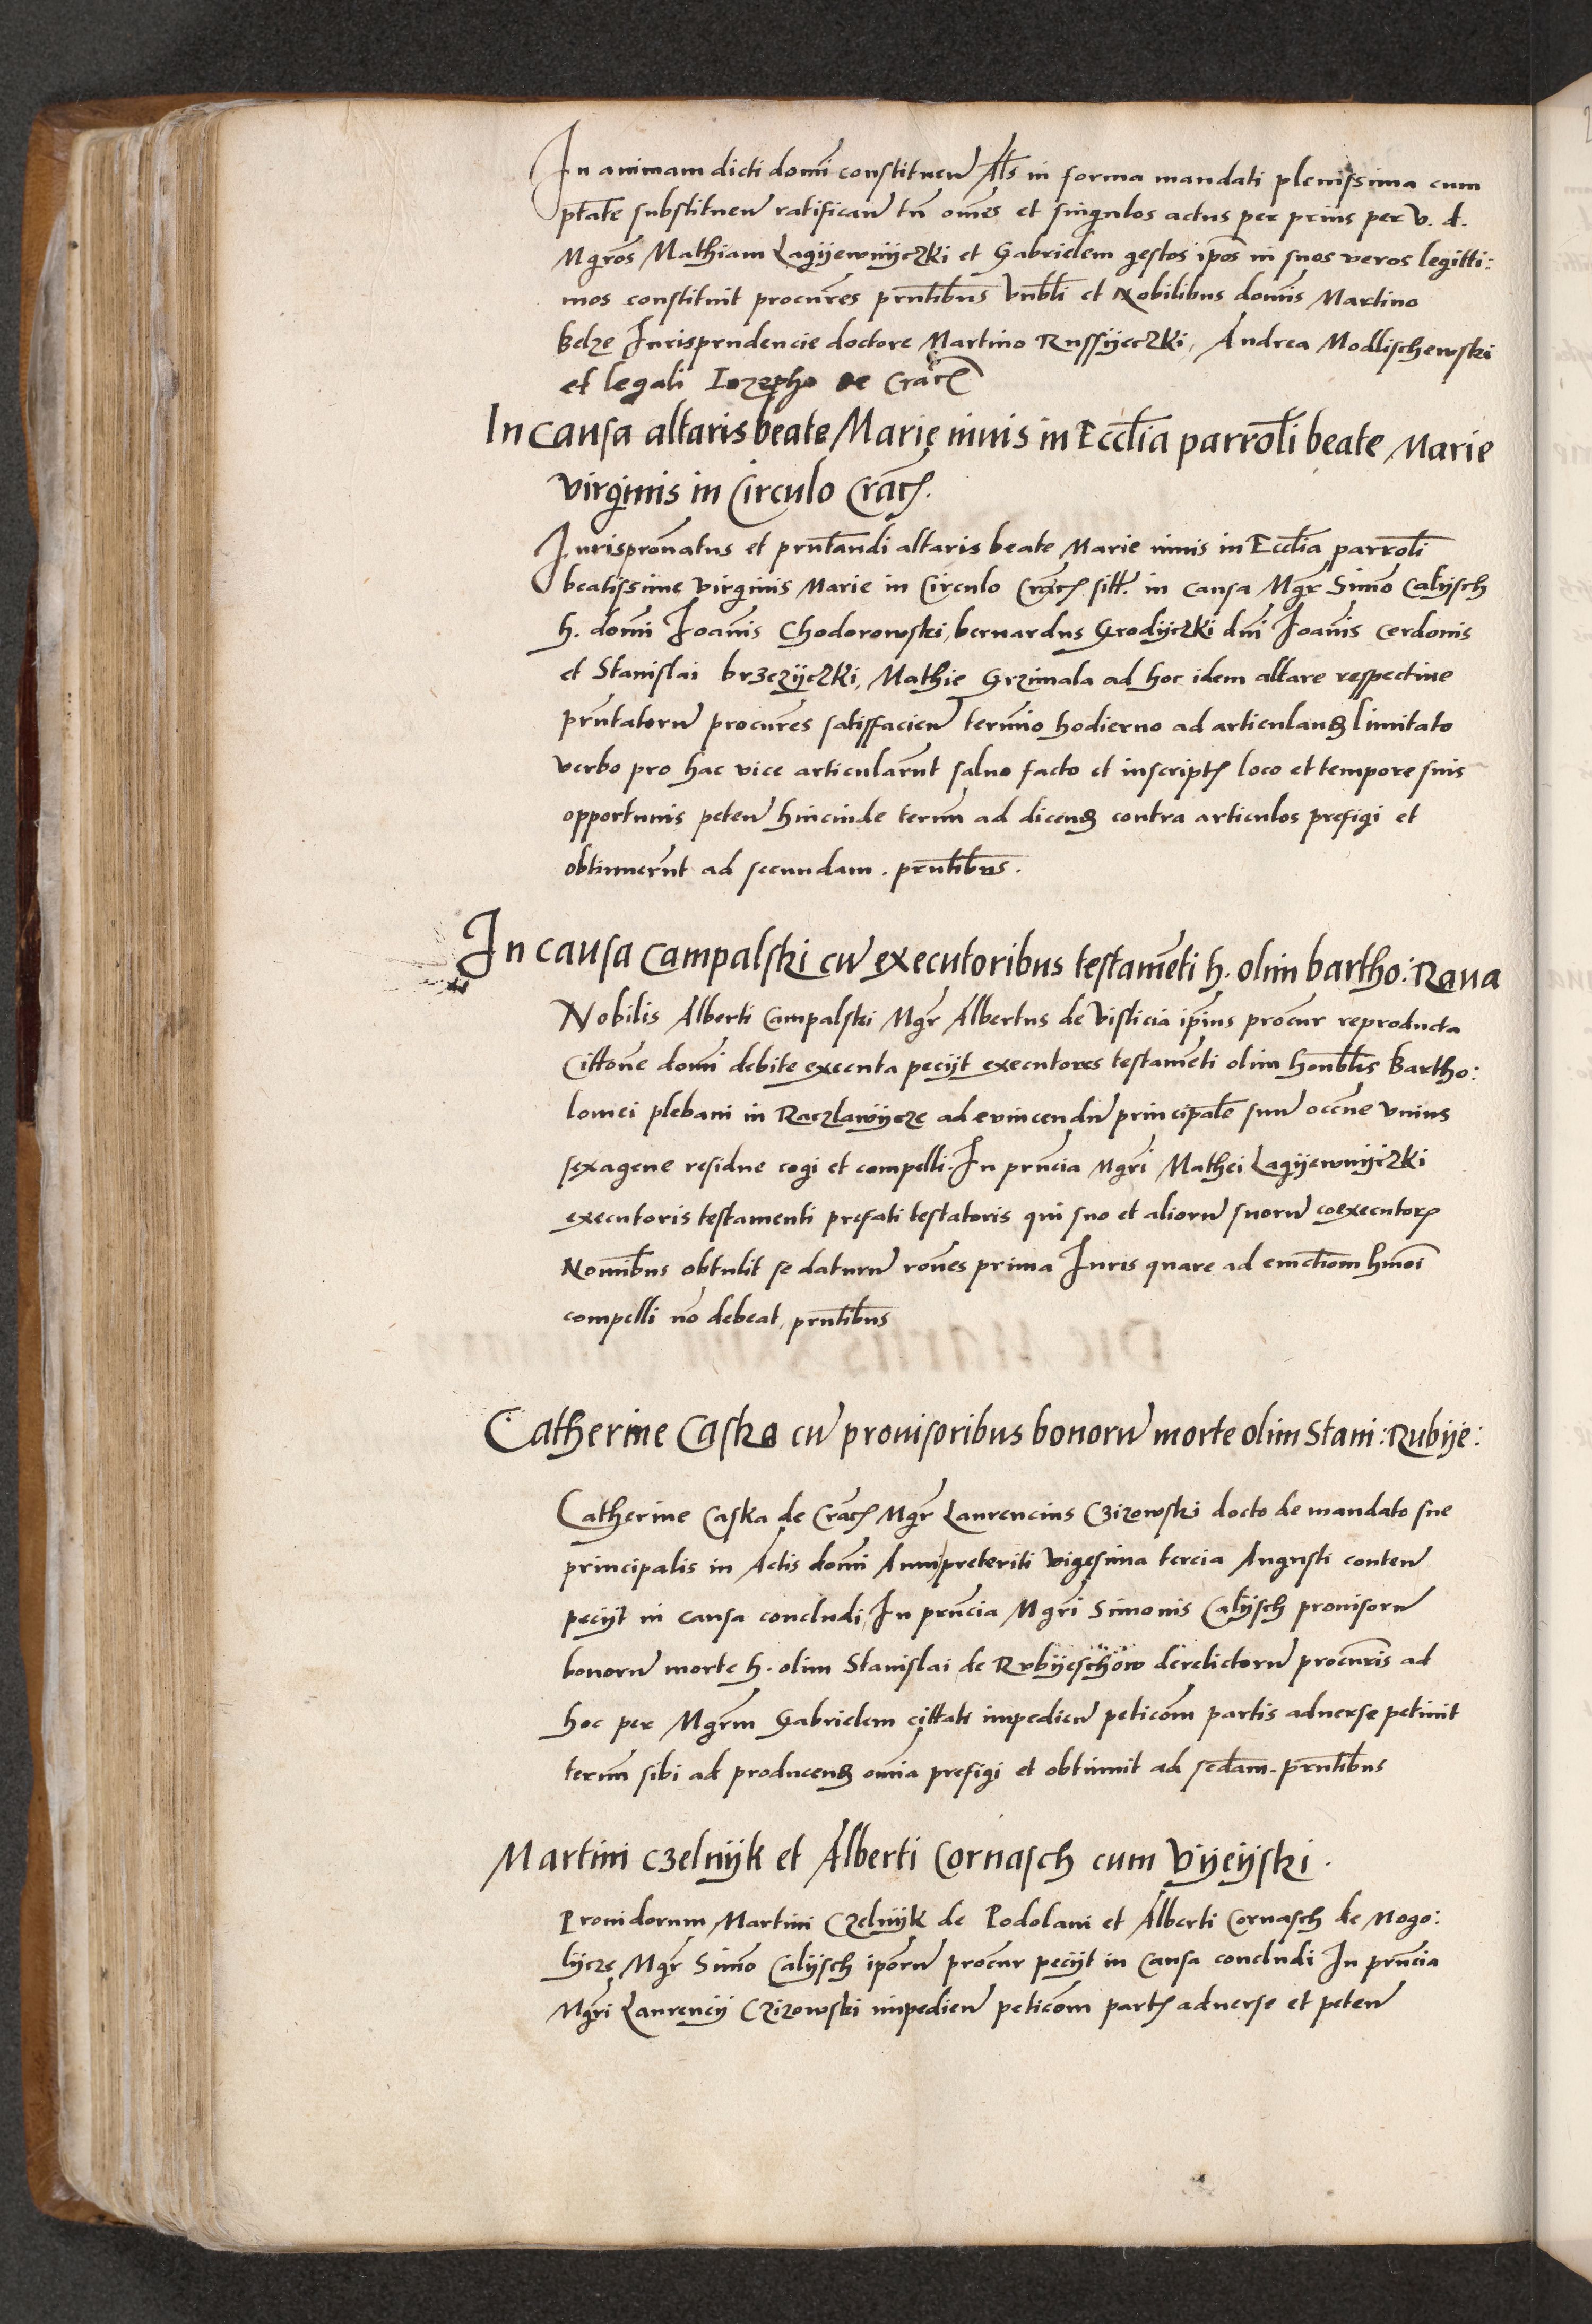 In animam dicti domi constituen Als in forma mandati plenissima cum
ptate substituen ratifican tn omes et singulos actus per prius per v. d.
Mgros Mathiam Lagijewnijczki et Gabrielem gestos ipos in suos veros legitti:
mos constituit procures pruntibus Vnbli et Nobilibus domis Martino
Belze Jurisprudencie doctore Martino Russijeczki, Andrea Modlischewski
et legali Iozepho de Crac
In causa altaris beate Marie niuis in Ecclia parroli beate Marie
virginis in Circulo Crac.
Jurispronatus et pruntandi altaris beate Marie niuis in Ecclia parroli
beatissime virginis Marie in Circulo Crac. sitt. in causa Mgr Simo Calijsch
h. domi Joanis Chodorowski, bernardus Grodijczki dni Joanis Cerdonis
et Stanislai brzezijczki, Mathie Grzimala ad hoc idem altare respectiue
pruntatoru procures satisfacien termio hodierno ad articuland limitato
verbo pro hac vice articularunt saluo facto et inscript loco et tempore suis
opportunis peten hincinde termu ad dicend contra articulos prefigi et
obtinuerunt ad secundam. pruntibus.
In causa Campalski cu executoribus testameti h. olim bartho: Raua
Nobilis Alberti Campalski Mgr Albertus de Visticia ipius procur reproducta
Cittone domi debite executa pecijt executores testameti olim honbles Bartho:
lomei plebani in Raczlawijcze ad euincendu principale suu occne vnius
sexagene residue cogi et compelli. In pruncia Mgri Mathei Lagijewnijczki
executoris testamenti prefati testatoris qui suo et alioru suoru coexecutor
Nomibus obtulit se daturu rones prima Juris quare ad euictiom hmoi
compelli no debeat, pruntibus
Catherine Caska cu prouisoribus bonoru morte olim Stani: Rubije:
Catherine Caska de Crac Mgr Laurencius Czizowski docto de mandato sue
principalis in Actis domi Anni preteriti vigesima tercia Augusti conten
pecijt in causa concludi, In pruncia Mgri Simonis Calijsch prouisoru
bonoru morte h. olim Stanislai de Rubijeschow derelictoru procuris ad
hoc per Mgrm Gabrielem cittati impedien peticom partis aduerse petiuit
termu sibi ad producend omia prefigi et obtinuit ad sedam. pruntibus
Martini Czelnijk et Alberti Cornasch cum Vijeijski.
Prouidorum Martini Czelnijk de Podolani et Alberti Cornasch de Mogo:
lijcze Mgr Simo Calijsch iporu procur pecijt in causa concludi In pruncia
Mgri Laurencij Czizowski impedien peticom part aduerse et peten